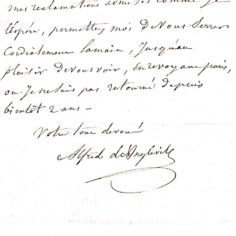 mes reclamations comme je
l'espère, permettez moi de vous serrer
Cordialement la main, jusqu'au
plaisir de vous voir, en revoyant paris,
ou je ne suis pas retourné depuis
bientôt 2 ans -
Votre tout devoué
Alfred de